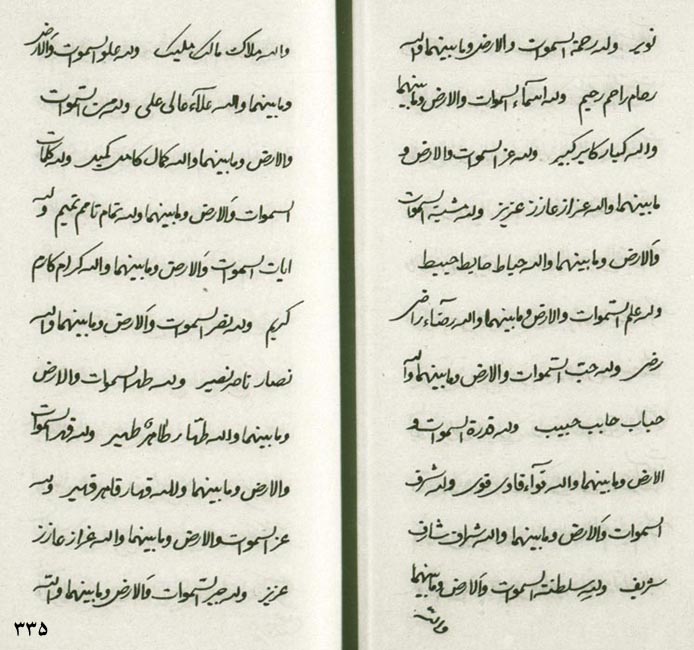 نویر ولله رحمة السموات والارض ومابینهما والله
رحام راحم رحیم ولله اسماء السموات والارض ومابینهما
والله کبار کابر کبیر ولله عز السموات والارض و
مابینهما والله عزاز عازز عزیز ولله مشیة السموات
والارض ومابینهما والله
ولله علم السموات والارض ومابینهما والله رضاء راضی
رضی ولله حب السموات والارض ومابینهما والله
حباب حابب حبیب ولله قدرة السموات و
الارض ومابینهما والله قوآء قاوی قوی ولله شرف
السموات والارض ومابینهما والله شراف شارف
شریف ولله سلطنة السموات والارض ومابینهما
والله
والله ملاک مالک ملیک ولله علو السموات والارض
ومابینهما والله علآء عالی علی ولله السموات
والارض ومابینهما والله کمال کامل کمیل ولله کلمات
السموات والارض ومابینهما ولله تمام تامم تمیم ولله
ایات السموات والارض ومابینهما والله کرام کارم
کریم ولله نصر السموات والارض ومابینهما والله
نصار ناصر نصیر ولله طهر السموات والارض
ومابینهما والله طهار طاهر طهیر ولله قهر السموات
والارض ومابینهما والله قهار قاهر قهیر ولله
عز السموات والارض ومابینهما والله عزاز عازز
عزیز ولله جبر السموات والارض ومابینهما والله
۳۳۵